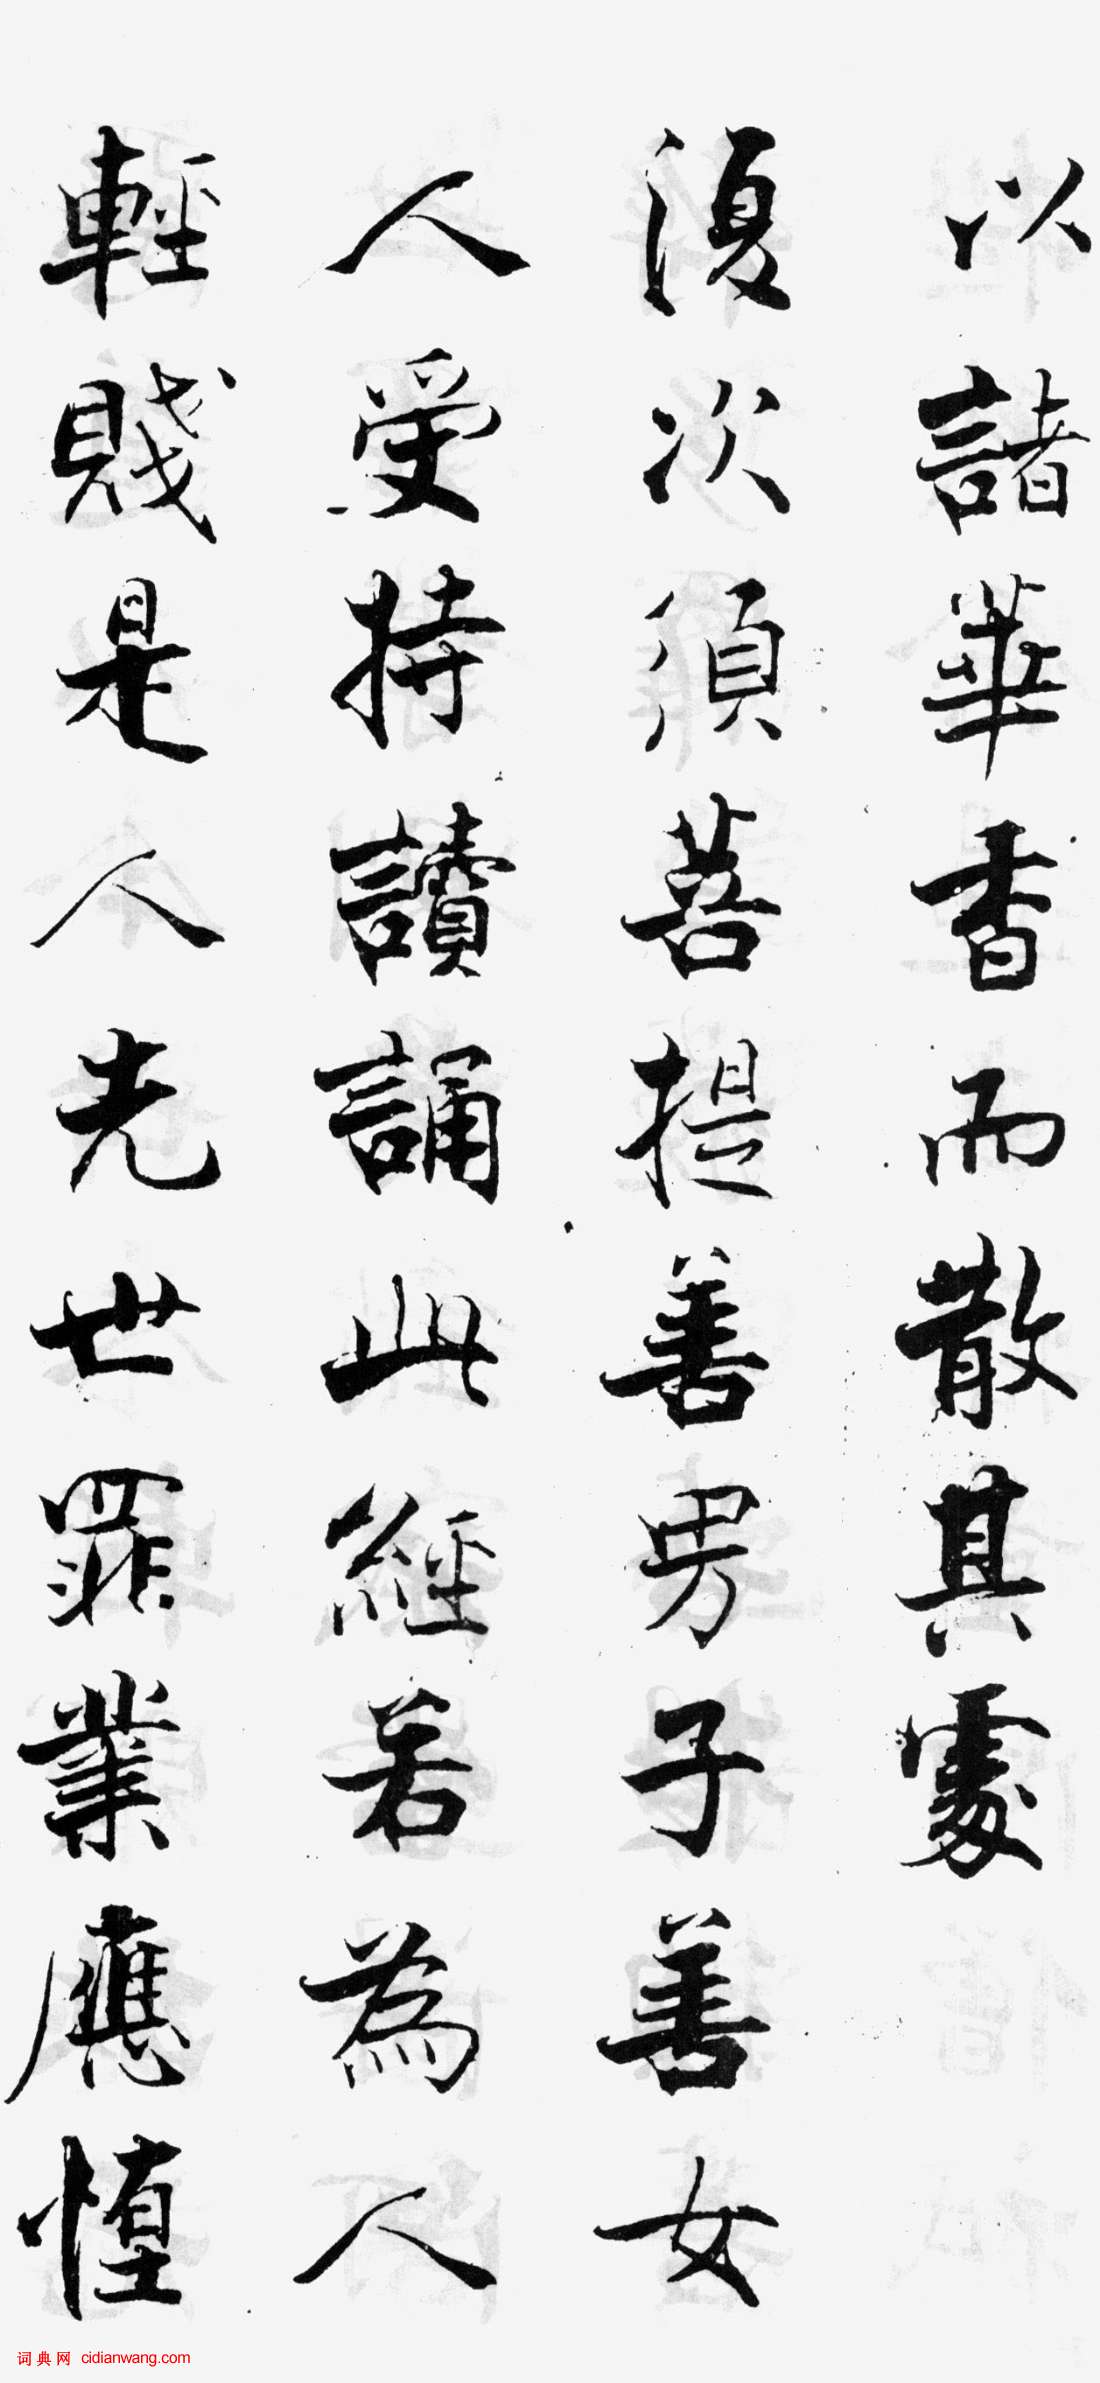 以諸華香而散其處
復次須菩提善男子善女
人受持讀誦此經若為人
輕賤是人先世罪業應墮
词典网 cidianwang.com